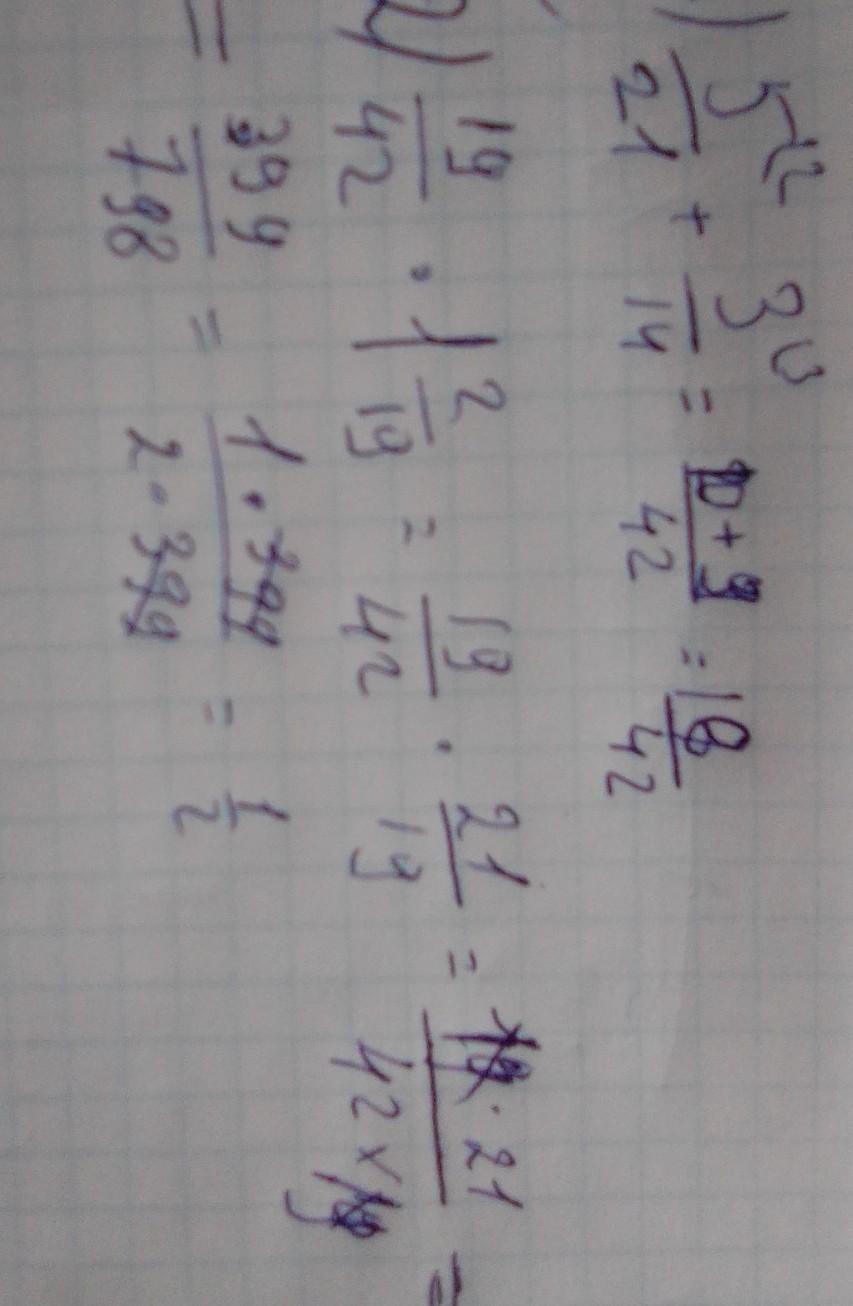 1) 5/21 + 3/14 = (10 + 9)/42 = 19/42
2) 19/42 · 1 2/19 = 19/42 · 21/19 = (19 · 21)/(42 × 19) =
= 399/798 = (1 · 399)/(2 · 399) = 1/2